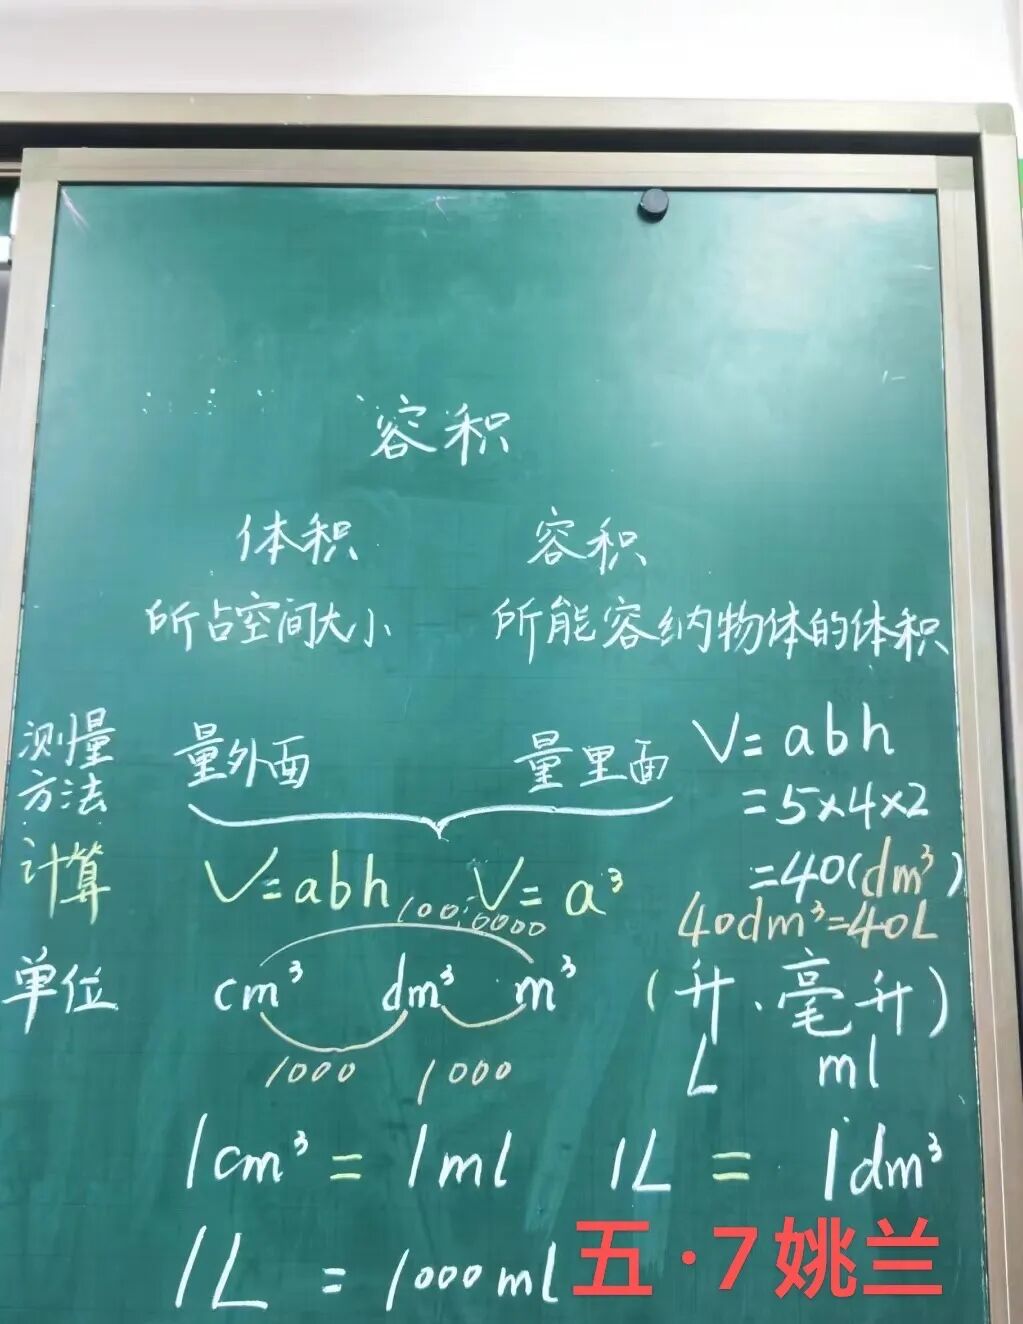 容积
体积 容积
所占空间大小 所能容纳物体的体积
测量方法 量外面 量里面 V=abh
=5×4×2
计算 V=abh V=a³ =40(dm³)
40dm³=40L
1000000
单位 cm³ dm³ m³ (升、毫升)
1000 1000 L ml
1cm³ = 1ml 1L = 1dm³
1L = 1000ml
五·7姚兰